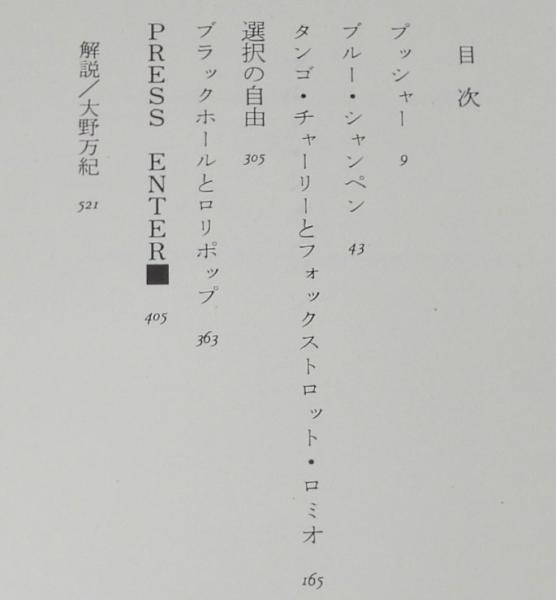 目次
プッシャー 9
ブルー・シャンペン 43
タンゴ・チャーリーとフォックストロット・ロミオ 165
選択の自由 305
ブラックホールとロリポップ 363
PRESS ENTER■ 405
解説/大野万紀 521